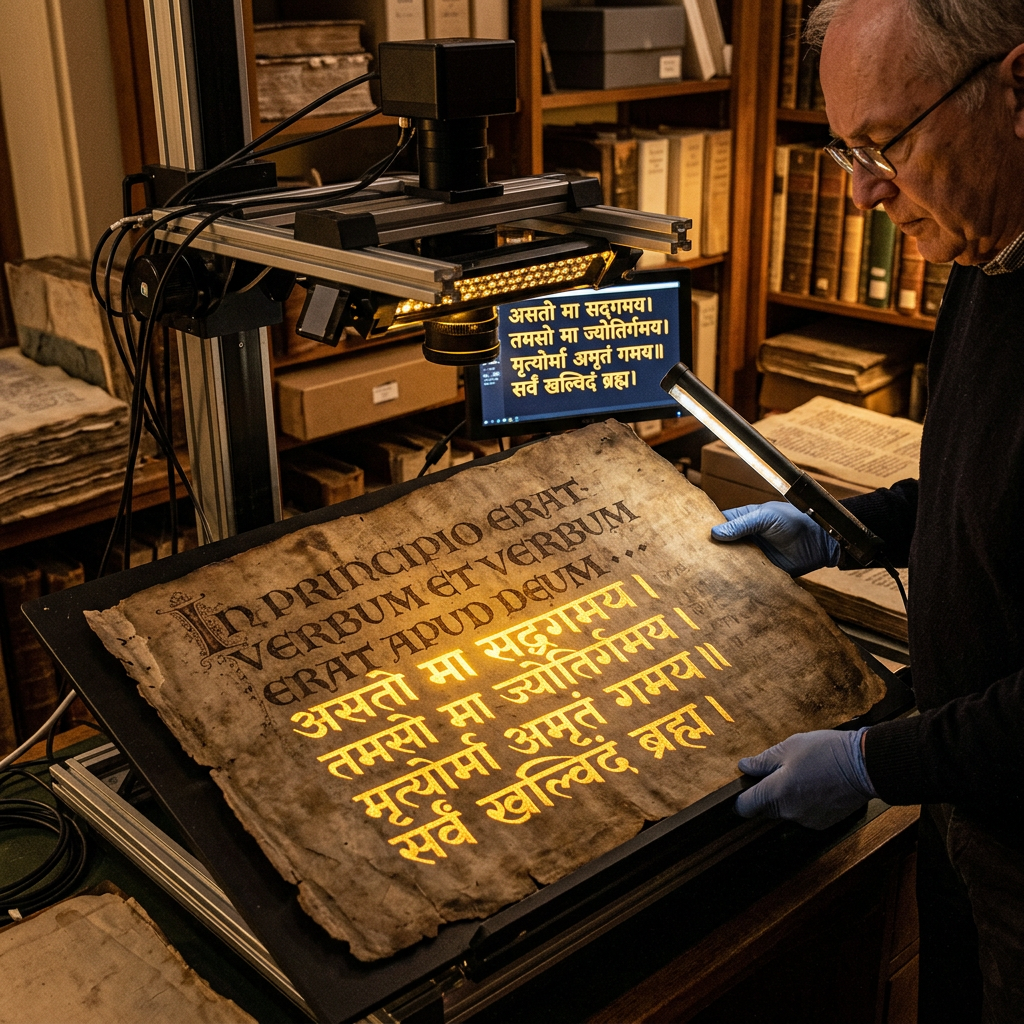 असतो मा सद्गमय।
तमसो मा ज्योतिर्गमय।
मृत्योर्मा अमृतं गमय॥
सर्वं खल्विदं ब्रह्म।
IN PRINCIPIO ERAT:
VERBUM ET VERBUM
ERAT APUD DEUM...
असतो मा सद्गमय।
तमसो मा ज्योतिर्गमय।
मृत्योर्मा अमृतं गमय॥
सर्वं खल्विदं ब्रह्म।